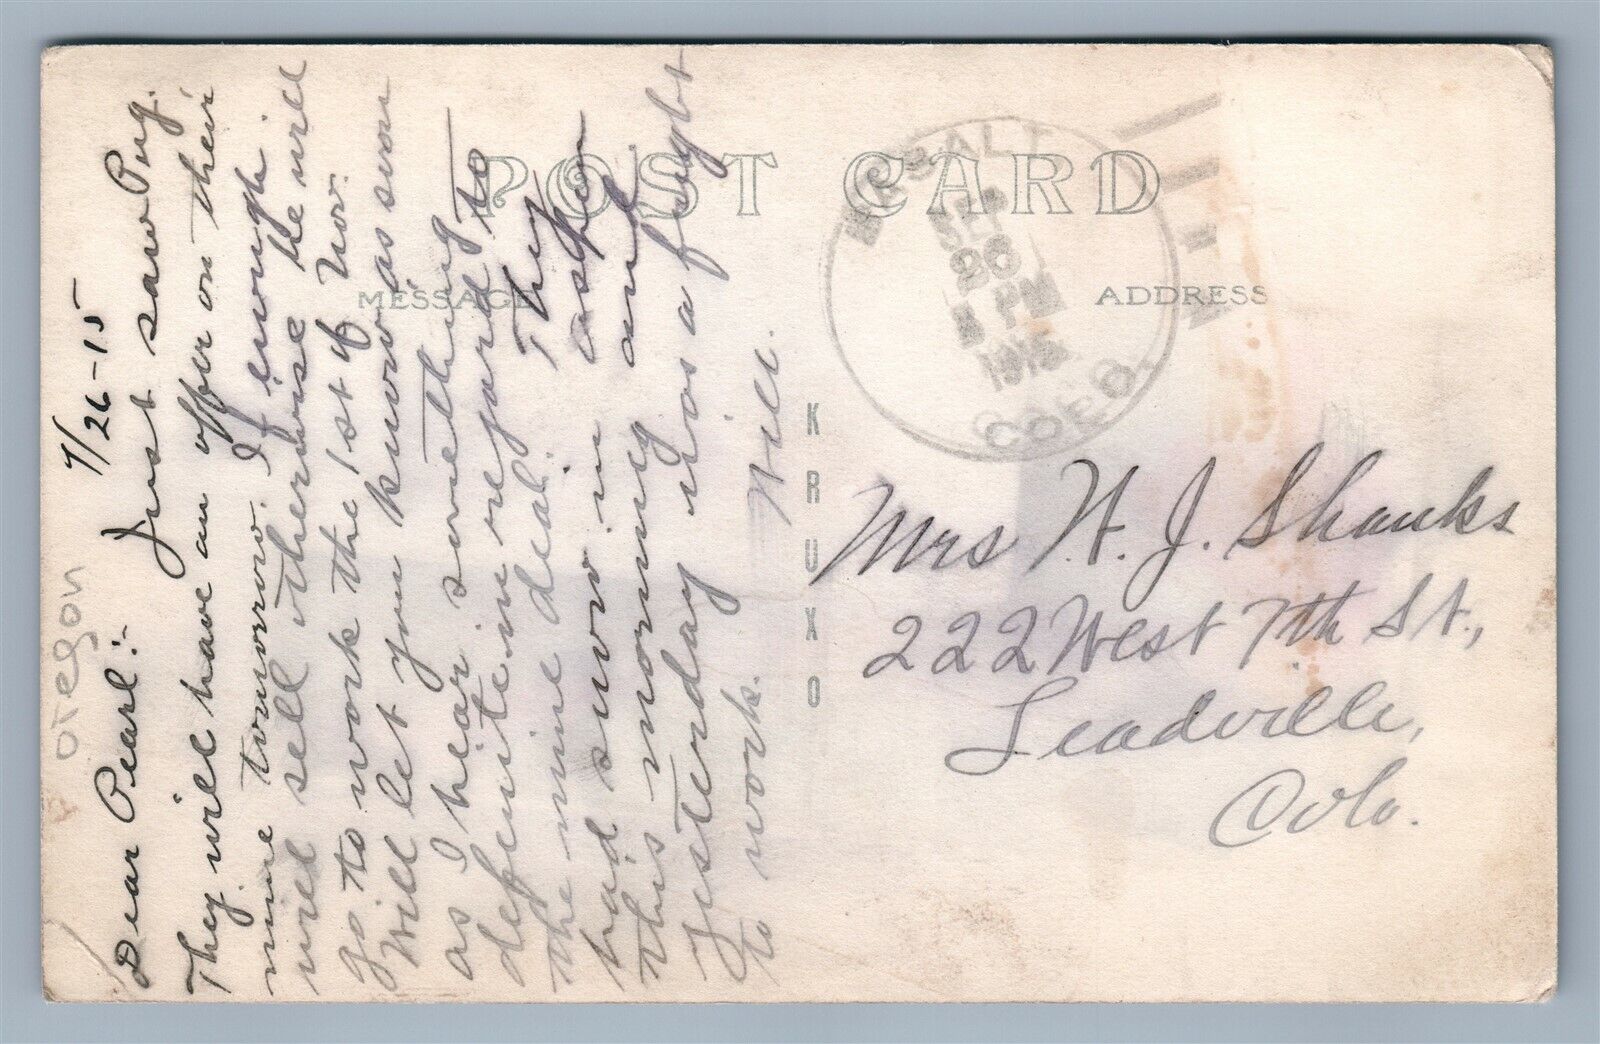 POST CARD
MESSAGE
ADDRESS
KRUXO
BASALT
SEP
26
1 PM
1915
COLO.
oregon
9/26-15
Dear Pearl:- Just saw Pug.
They will have an offer on their
mine tomorrow. If enough
will sell otherwise he will
go to work the 1st of Nov.
Will let you know as soon
as I hear something
definite in regard to
the mine deal. They
had snow in aspen
this morning and
yesterday was a fright
to work. Will.
Mrs H. J. Shanks
222 West 7th St.,
Leadville,
Colo.